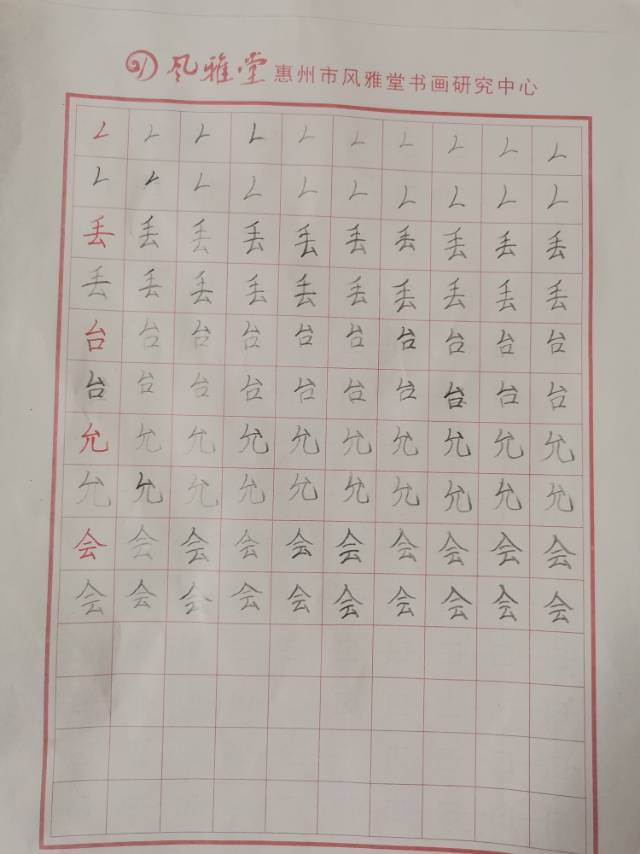 风雅堂 惠州市风雅堂书画研究中心
𠃋 𠃋 𠃋 𠃋 𠃋 𠃋 𠃋 𠃋 𠃋 𠃋
𠃋 𠃋 𠃋 𠃋 𠃋 𠃋 𠃋 𠃋 𠃋 𠃋
丢 丢 丢 丢 丢 丢 丢 丢 丢 丢
丢 丢 丢 丢 丢 丢 丢 丢 丢 丢
台 台 台 台 台 台 台 台 台 台
台 台 台 台 台 台 台 台 台 台
允 允 允 允 允 允 允 允 允 允
允 允 允 允 允 允 允 允 允 允
会 会 会 会 会 会 会 会 会 会
会 会 会 会 会 会 会 会 会 会